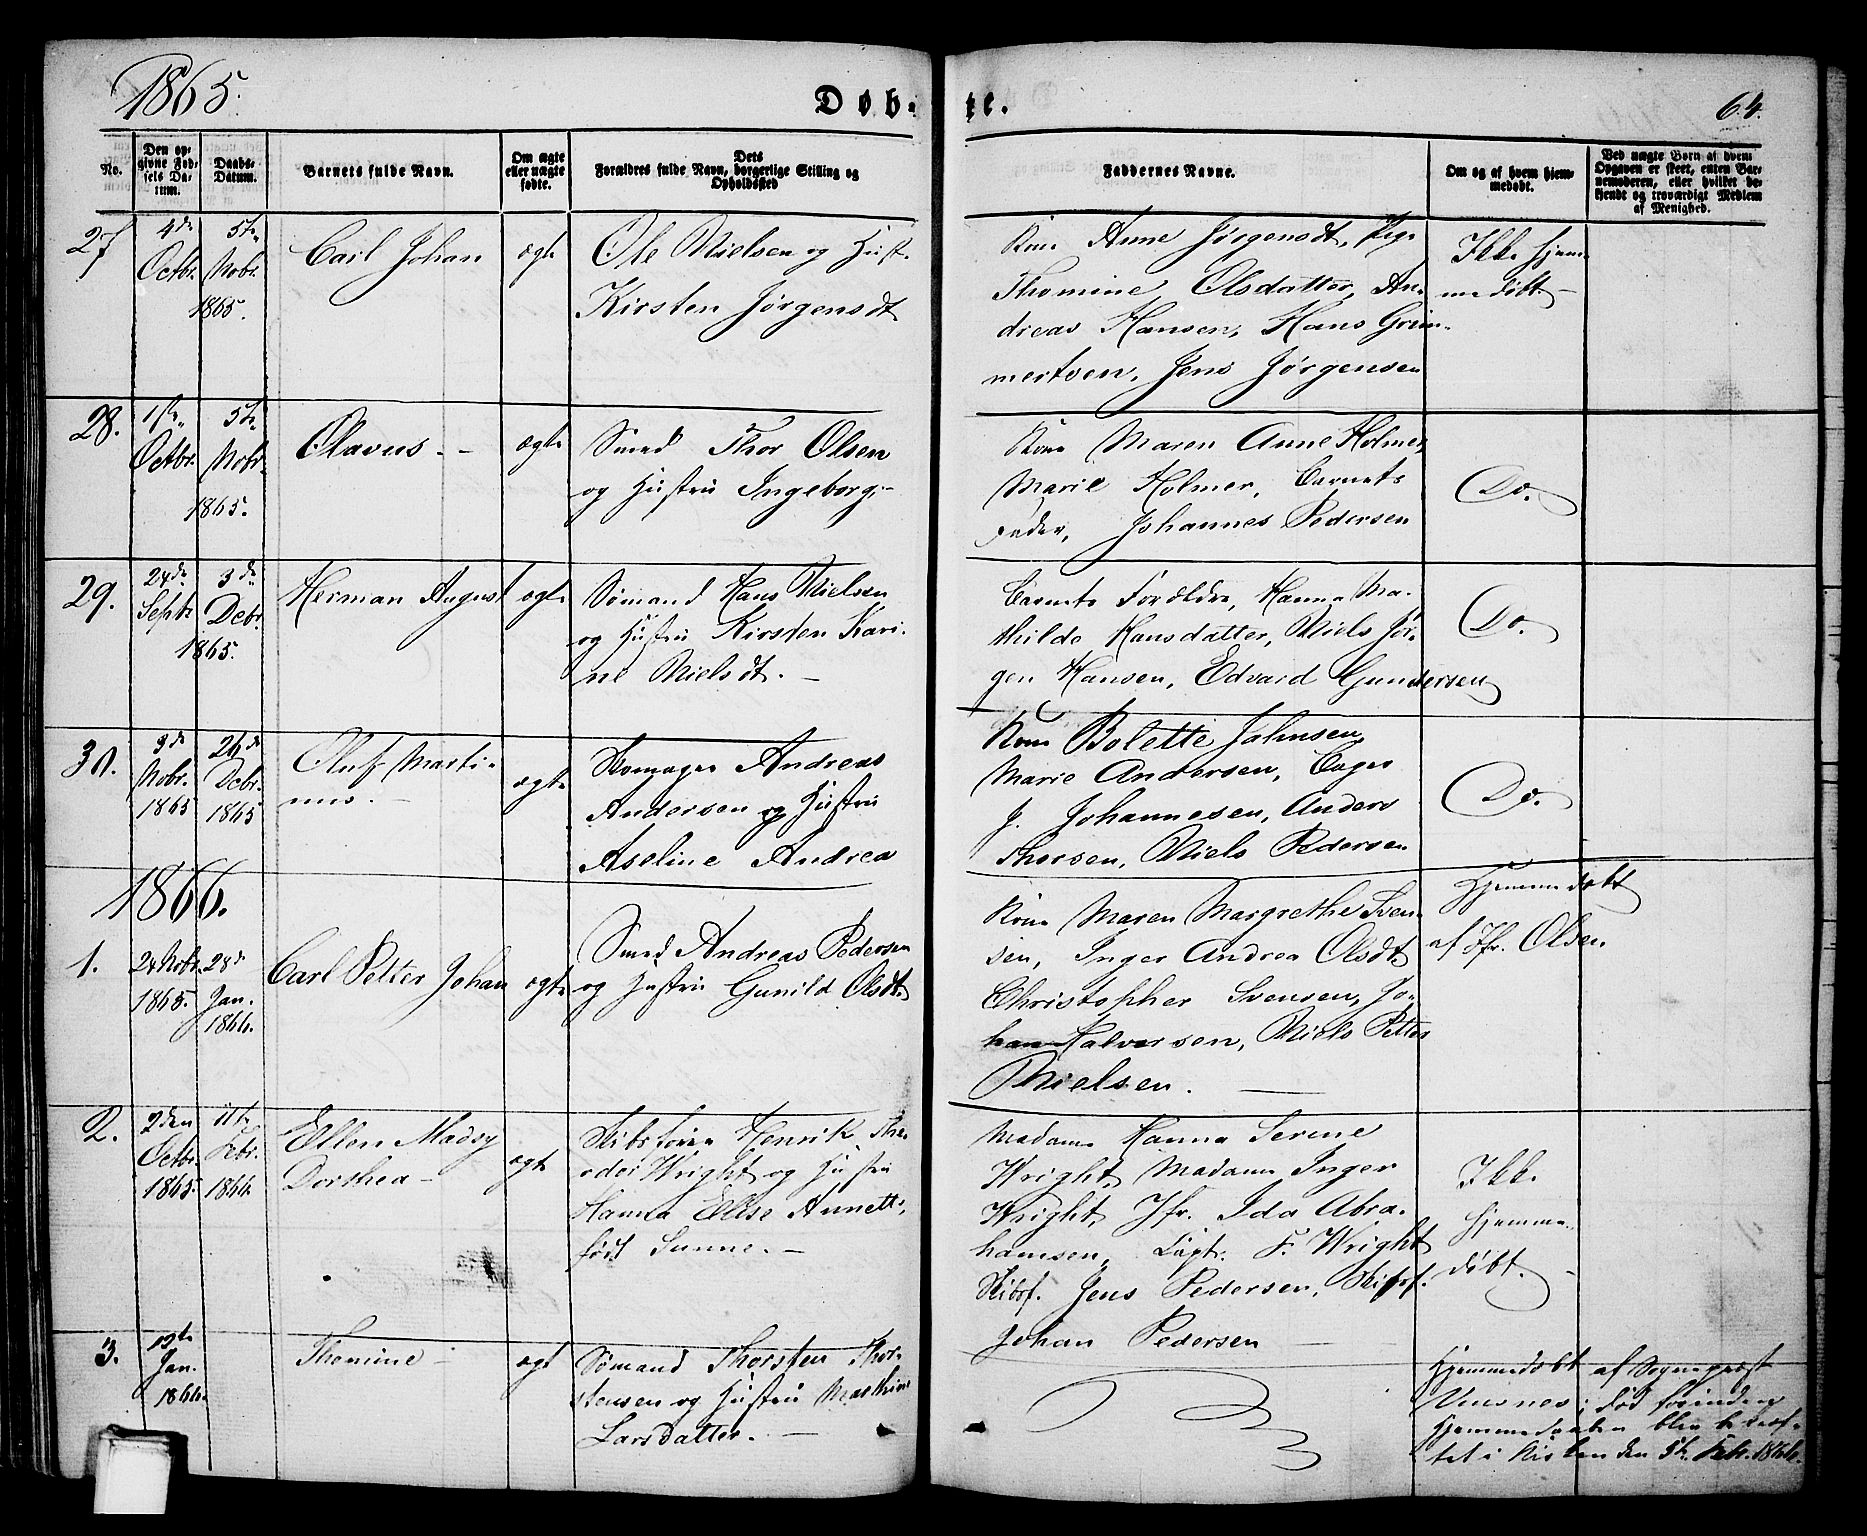 1865.
Døb-
te.
64.
No.
Den op-
givne Fød-
sels Da-
tum.
Daabs-
Datum.
Barnets fulde Navn.
Om ægte
eller uægte
fødte.
Dets
Forældres fulde Navn, borgerlige Stilling og
Opholdssted
Faddernes Navne.
Om og af hvem hjem-
medøbt.
Ved uægte Born af hvem
Opgaven er skeet, enten Bar-
nemoderen, eller hvilket be-
kjendt og troværdigt Medlem
af Menighed.
27
4de
Octbr.
5te
Nobr.
1865.
Carl Johan
ægte
Ole Nielsen og Hust.
Kirsten Jørgensdt
Kone Anne Jørgensdt, Pige
Thomine Olsdatter, An-
dreas Hansen, Hans Grim-
mertsen, Jens Jørgensen
Ikke hjem-
medøbt. -
28.
1ste
Octbr.
5te
Nobr.
1865.
Olavus. -
ægte
Smed Thor Olsen
og Hustru Ingeborg. -
Kone Maren Anne Holmer,
Marie Holmer, Barnets
Fader, Johannes Pedersen
Do.
29.
24de
Septr.
3de
Debr.
1865.
Herman August
ægte
Sømand Hans Nielsen
og Hustru Kirsten Kari-
ne Nielsdt. -
Barnets Forældre, Hanna Ma-
thilde Hansdatter, Niels Jør-
gen Hansen, Edvard Gundersen
Do.
30.
9de
Nobr.
1865
26de
Debr.
1865
Oluf Marti-
nus. -
ægte
Skomager Andreas
Andersen og Hustru
Aseline Andrea
Kone Bolette Jahnsen,
Marie Andersen,
J. Johannesen, Anders
Thorsen, Niels Pedersen
Do.
1866.
1.
24 Nobr.
1865.
28de
Jan.
1866.
Carl Petter Johan
ægte
Smed Andreas Pedersen
og Hustru Gunild Olsdt.
Kone Maren Margrethe Sven-
sen, Inger Andrea Olsdt.
Christopher Svensen, Jo-
han Halvorsen, Niels Petter
Nielsen. -
Hjemmedøbt
af Jfr. Olsen.
2.
2den
Octbr.
1865.
11te
Febr.
1866.
Ellen Madsy
Dorthea -
ægte
Skibsfører Henrik The-
odor Wright og Hustru
Hanna Elise Annette,
født Sunne. -
Madame Hanna Serene
Wright, Madame Inger
Wright, Jfr. Ida Abra-
hamsen, Capt. F. Wright
Skibsf. Jens Pedersen, Skibsf.
Johan Pedersen
Ikke
hjemme-
døbt. -
3.
13te
Jan.
1866.
Thomine -
ægt
Sømand Thorsten Thor-
stensen og Hustru Mathine
Larsdatter. -
Hjemmedøbt af Sognepræst
; død forinden
Hjemmedaaben blev bekræf-
tet i Kirken den 5te Febr. 1866.